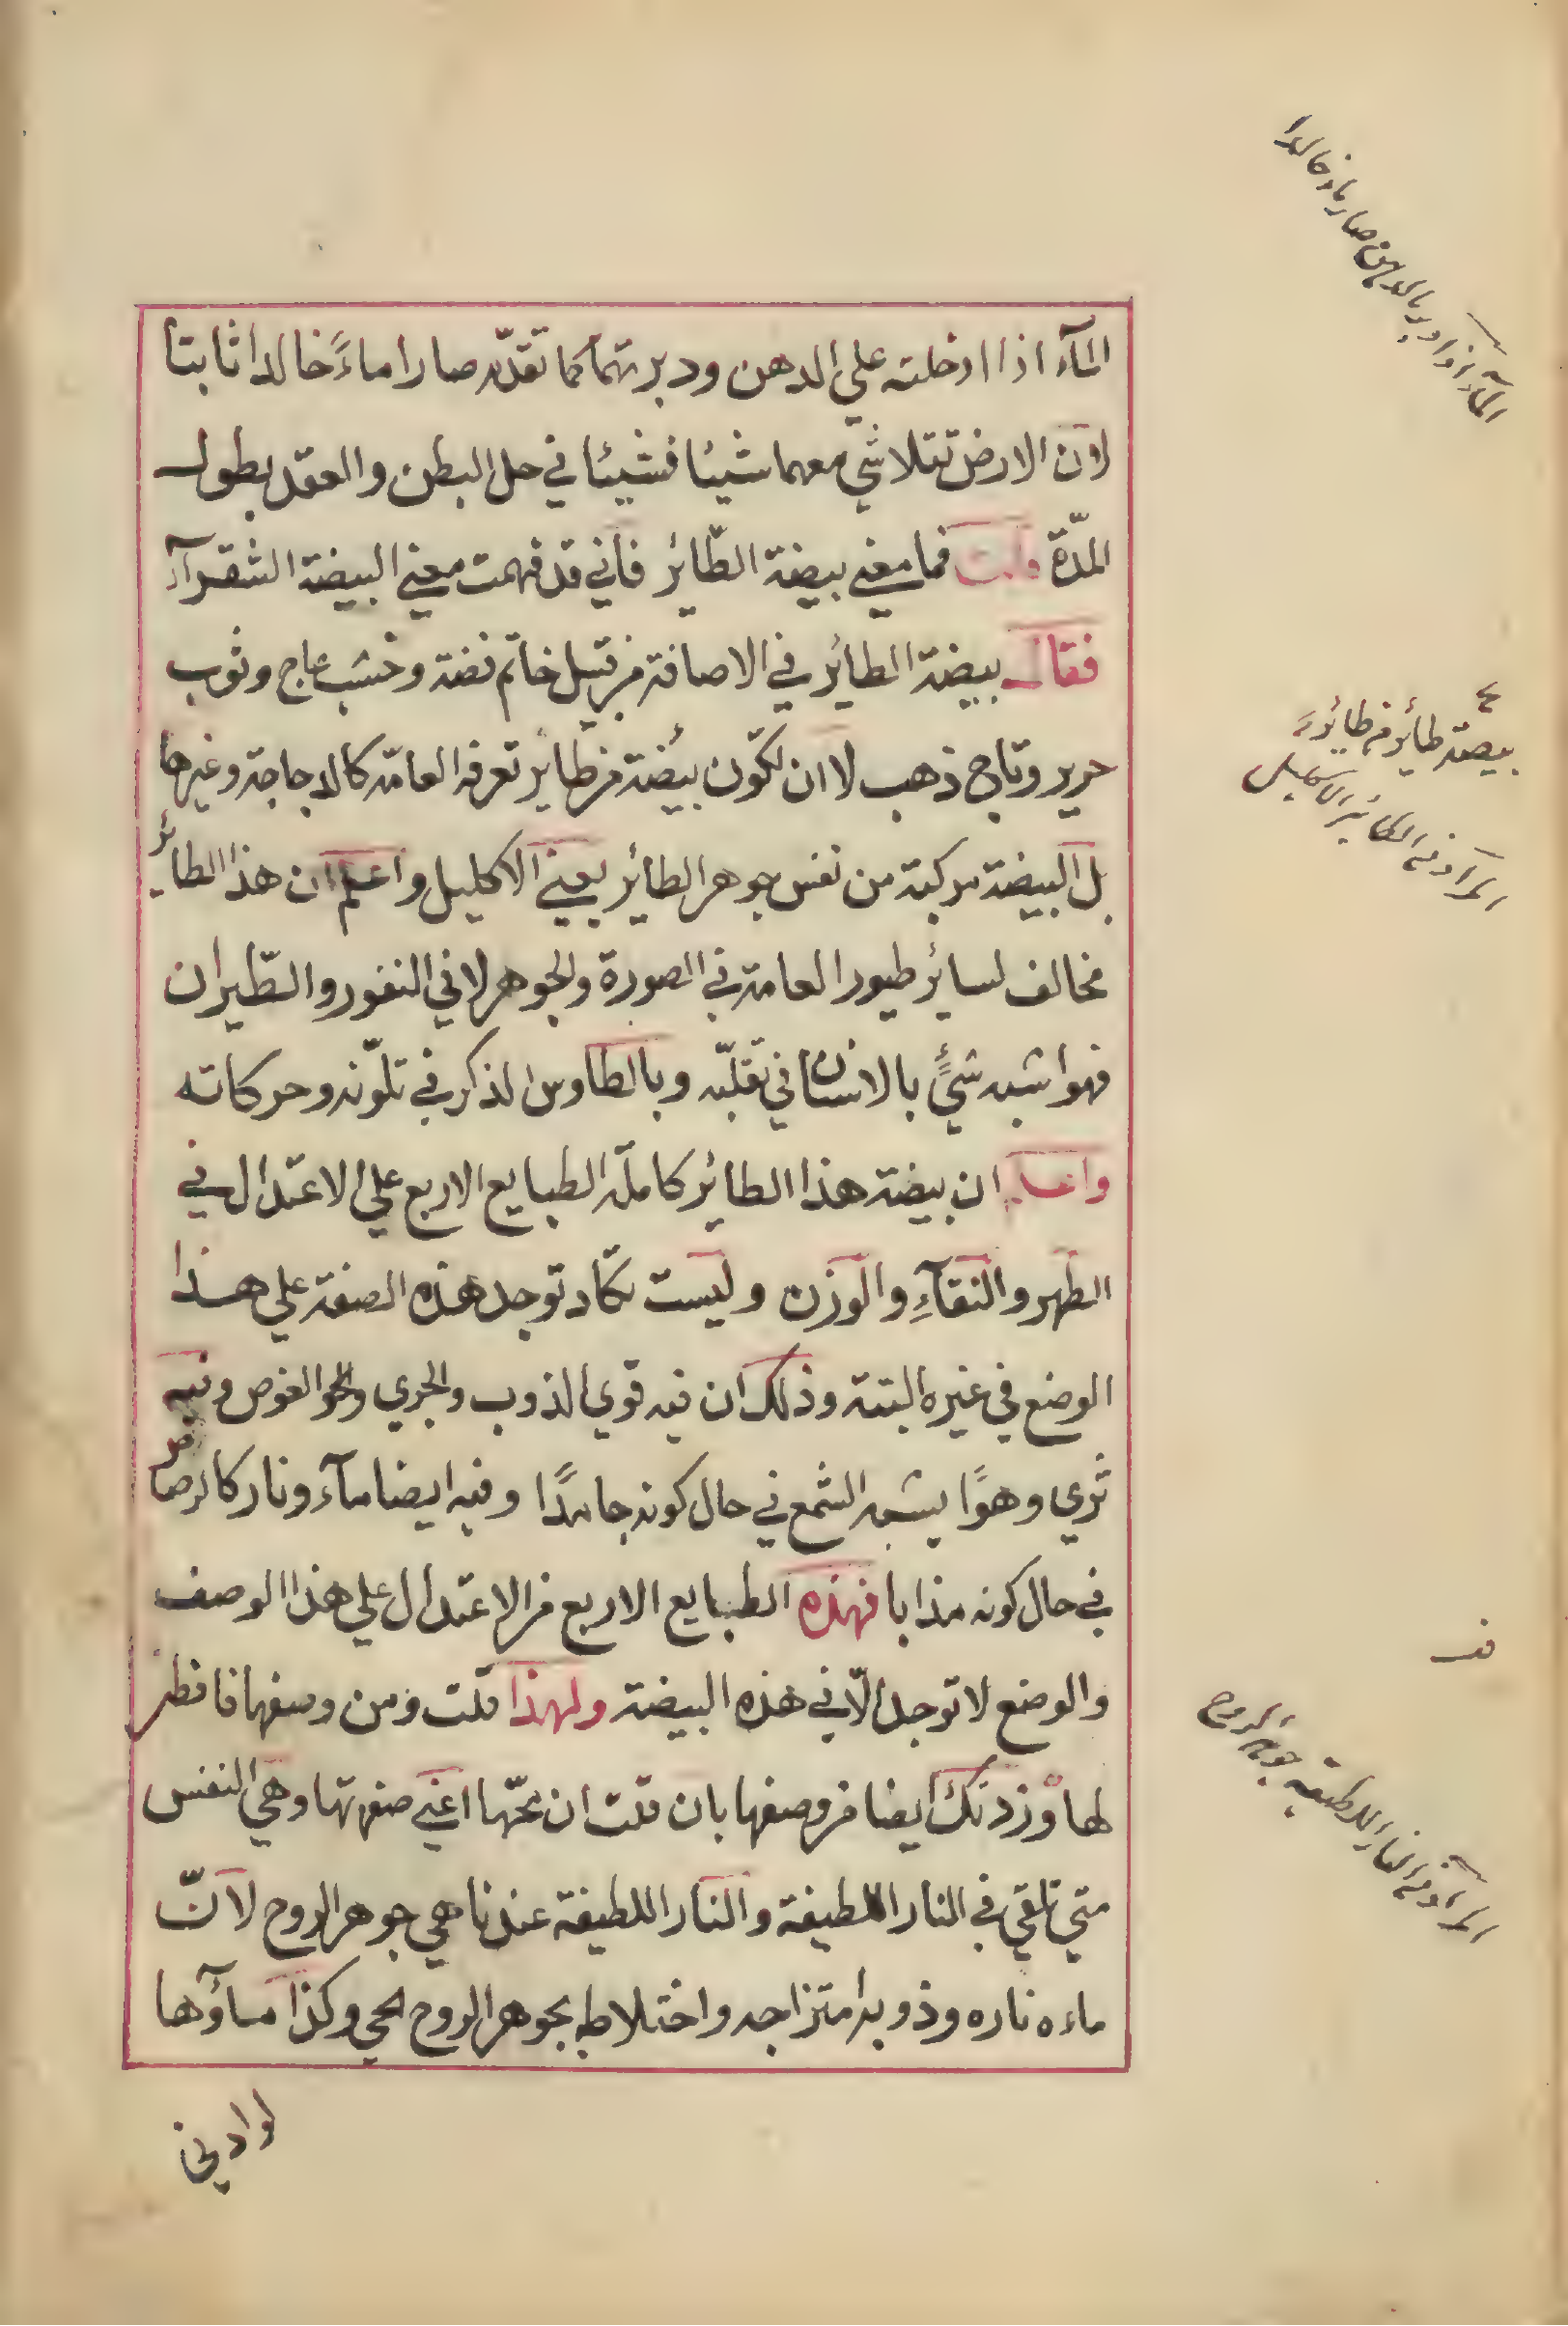 المآء اذا ادخلته علي الدهن ودبرتهما كما تقدّم صارا ماءً خالدا ثابتا
لاون الارض تتلاشي معهما شيئا فشيئا في حل البطن والعقد بطول
المدّة قلت فما معني بيضة الطّائر فاني قد فهمت معني البيضة الشقرآء
فقال بيضة الطائر في الاضافة من قبيل خاتم فضة وخشب عاج وثوب
حرير وتاج ذهب لا ان تكون بيضة من طائر تعرفه العامّة كالدجاجة وغيرها
بل البيضة مركبة من نفس جوهر الطائر يعني الاكليل واعلم ان هذا الطائر
مخالف لسائر طيور العامة في الصورة والجوهر لا في النفور والطّيران
فهو اشبه شيءٍ بالانسان في تقلبّه وبالطاوس الذكر في تلوّنه وحركاته
واعلم ان بيضة هذا الطائر كاملة الطبايع الاربع علي الاعتدال في
الطهر والنقآءِ والوزن وليست تكاد توجد هذه الصفة علي هذا
الوضع في غيره البتة وذلك ان فيه قوي الذوب والجري والغوص وفيه
ثري وهوًا يشبه الشمع في حال كونه جامدًا وفيه ايضا مآء ونار كالرصاص
في حال كونه مذابا فهذه الطبايع الاربع من الاعتدال علي هذا الوصف
والوضع لا توجد الّا في هذه البيضة ولهذا قلت ومن وصفها فانظر
لها وزدتك ايضا من وصفها بان قلت ان محّها اعني صفرتها وهي النفس
متي تلقي في النار اللطيفة والنار اللطيفة عندنا هي جوهر الروح لانّ
ماءه ناره وذوبه امتزاجه واختلاطه بجوهر الروح الحي وكذا مآؤها
لوادني
المآء اذا دبر بالدهن صار ماء خالدا
بيضة طائر من طائر
المراد من الطائر الاكليل
قف
المراد من النار اللطيفة جوهر الروح